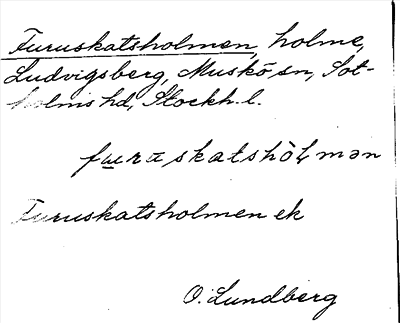 Furuskatsholmen, holme,
Ludvigsberg, Muskö sn, Sot-
holms hd, Stockh. l.
Furuskatsholmen ek
O. Lundberg